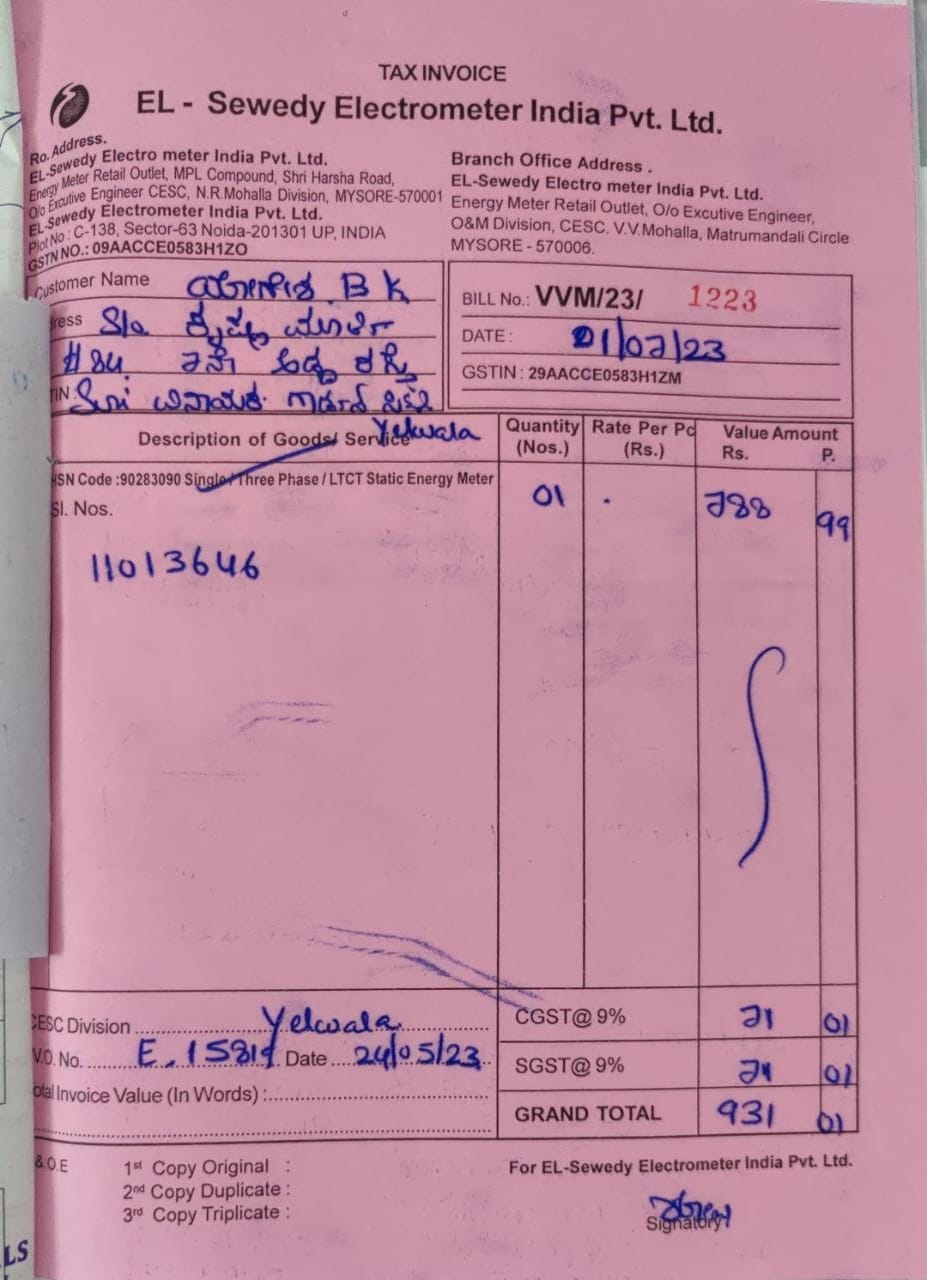 TAX INVOICE
EL - Sewedy Electrometer India Pvt. Ltd.
Ro. Address.
EL-Sewedy Electro meter India Pvt. Ltd.
Energy Meter Retail Outlet, MPL Compound, Shri Harsha Road,
O/o Excutive Engineer CESC, N.R.Mohalla Division, MYSORE-570001
EL-Sewedy Electrometer India Pvt. Ltd.
Plot No : C-138, Sector-63 Noida-201301 UP, INDIA
GSTN NO.: 09AACCE0583H1ZO
Branch Office Address .
EL-Sewedy Electro meter India Pvt. Ltd.
Energy Meter Retail Outlet, O/o Excutive Engineer,
O&M Division, CESC. V.V.Mohalla, Matrumandali Circle
MYSORE - 570006.
Customer Name B K
ress S/o
#84
TIN:
BILL No.: VVM/23/ 1223
DATE : 01/07/23
GSTIN : 29AACCE0583H1ZM
Yelwala
Description of Goods/ Service Quantity (Nos.) Rate Per Pc (Rs.) Value Amount Rs. P.
HSN Code :90283090 Single/Three Phase / LTCT Static Energy Meter 01 788 99
Sl. Nos.
11013646
CESC Division Yelwala
V.O. No. Date 24/05/23
otal Invoice Value (In Words) :
CGST@ 9% 71 01
SGST@ 9% 71 01
GRAND TOTAL 931 01
&.O.E
1st Copy Original :
2nd Copy Duplicate :
3rd Copy Triplicate :
For EL-Sewedy Electrometer India Pvt. Ltd.
Signatory
LS